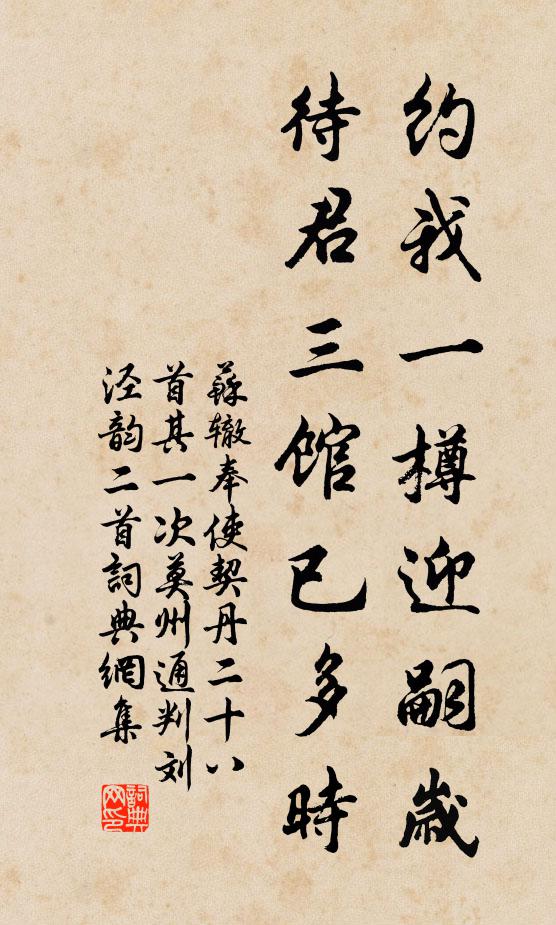 约我一樽迎嗣歲
待君三馆已多時
蘇辙奉使契丹二十八
首其一次莫州通判刘
泾韵二首詞典網集
詞典
网印